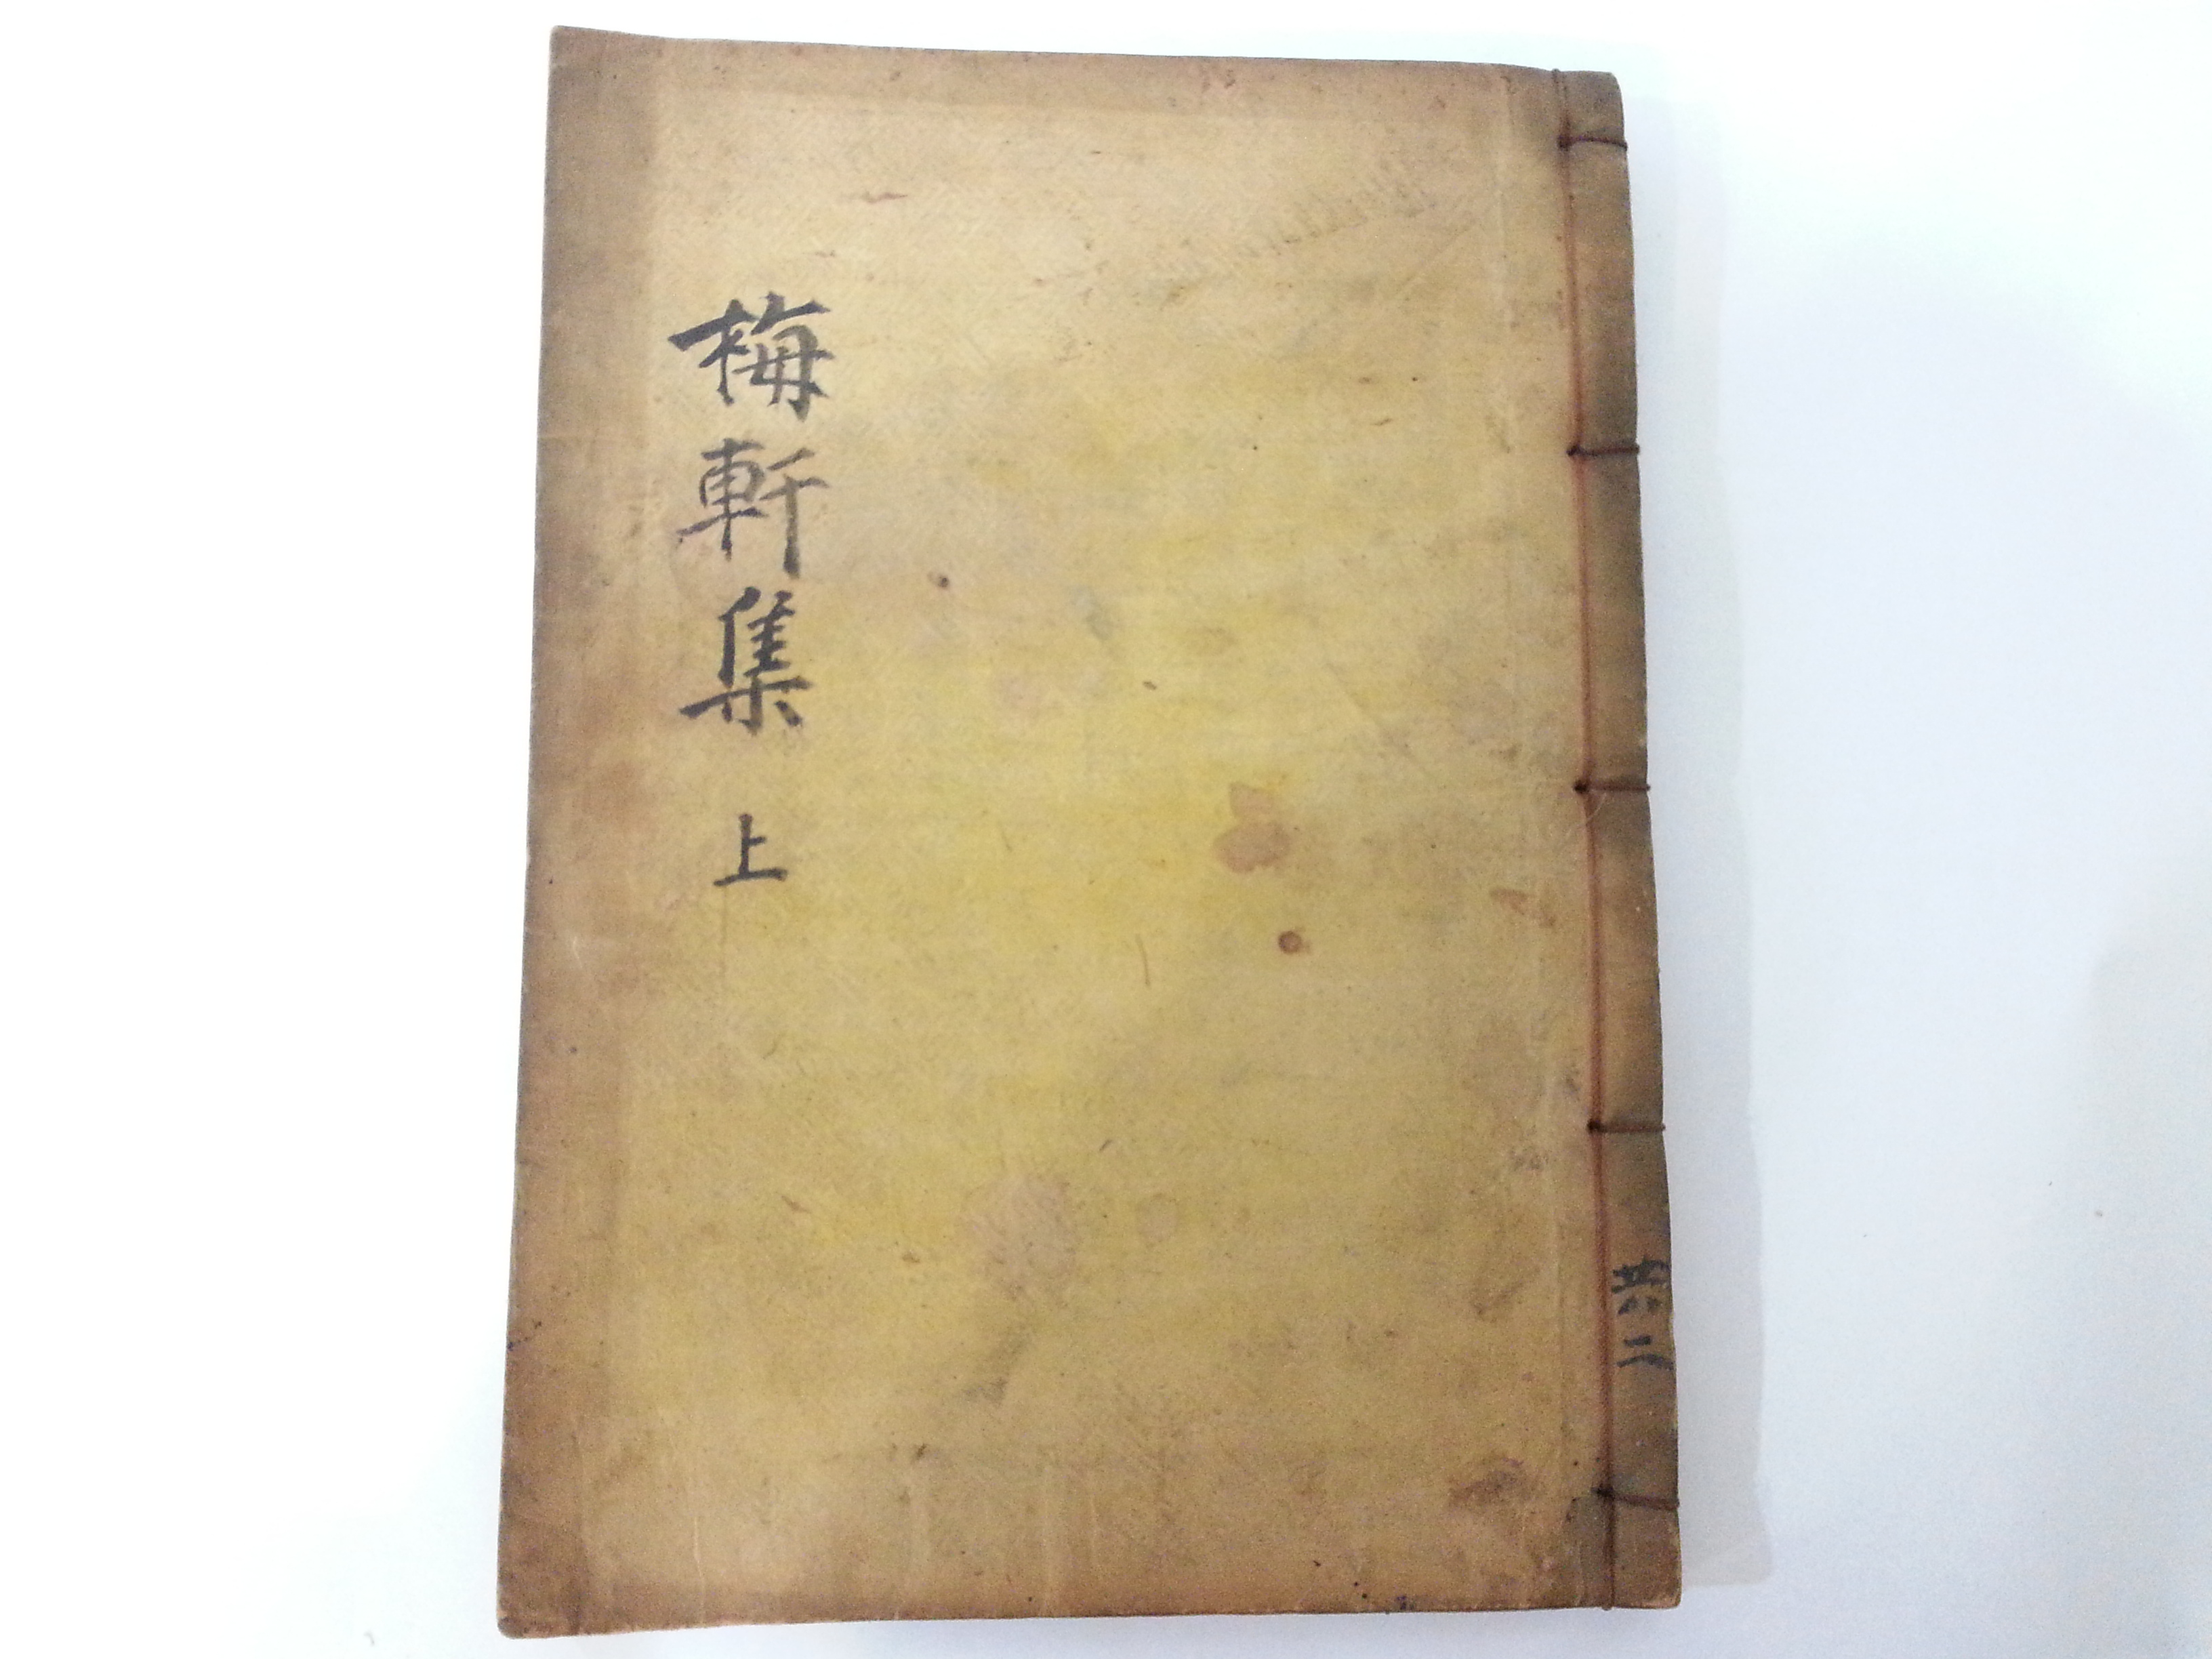 梅軒集 上
共二